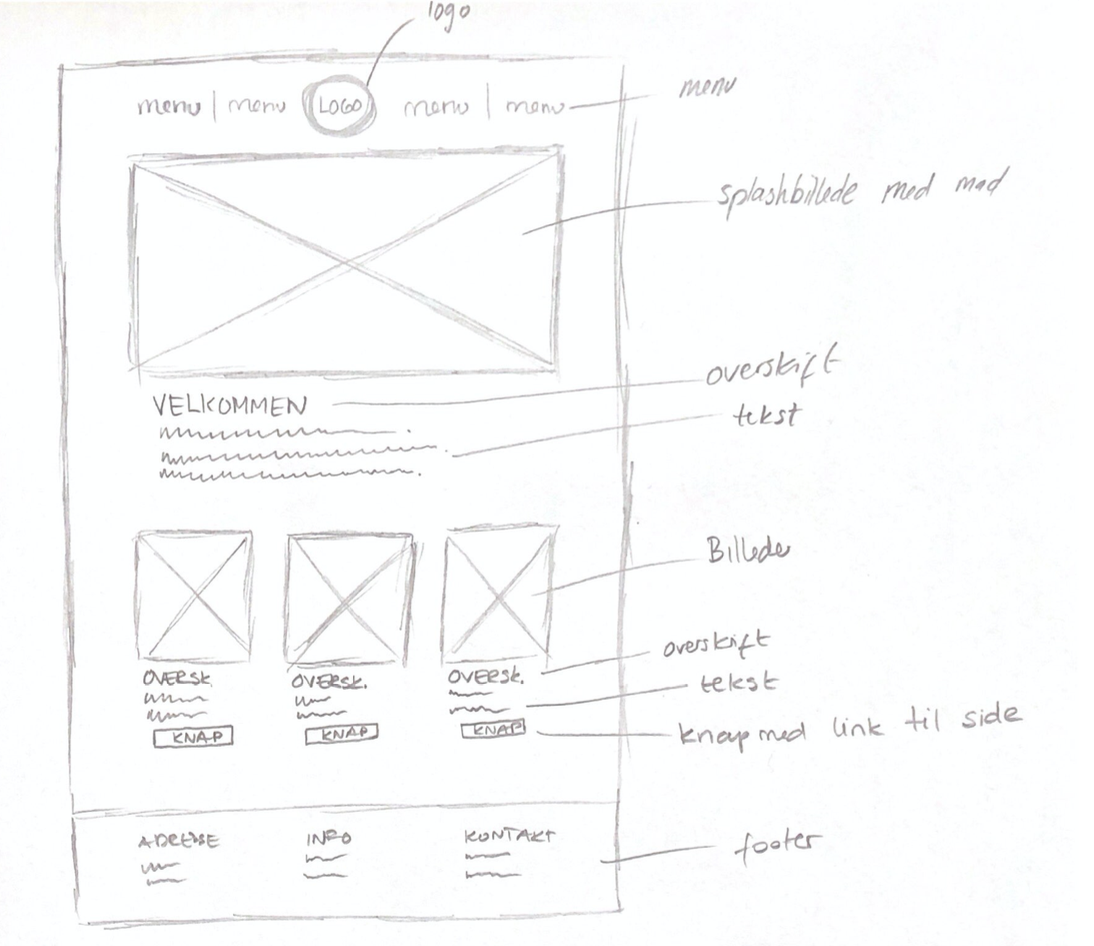 logo
menu | menu LOGO menu | menu
menu
splashbillede med mad
VELKOMMEN
overskift
tekst
Billede
OVERSK.
OVERSK.
OVERSK.
overskrift
tekst
KNAP
KNAP
KNAP
knap med link til side
ADRESSE
INFO
KONTAKT
footer